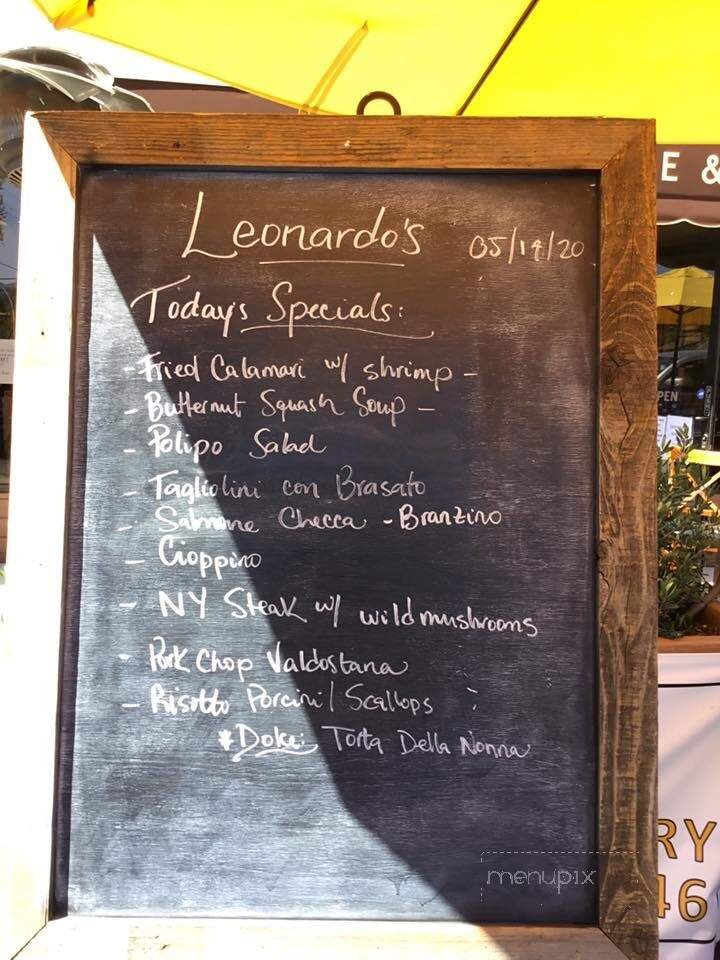 Leonardo's 05/14/20
Today's Specials:
- Fried Calamari w/ shrimp -
- Butternut Squash Soup -
- Polipo Salad
- Tagliolini con Brasato
- Salmone Checca - Branzino
- Cioppino
- NY Steak w/ wild mushrooms
- Pork Chop Valdostana
- Risotto Porcini / Scallops
* Dolce: Torta Della Nonna
E &
PEN
RY
46
menupix